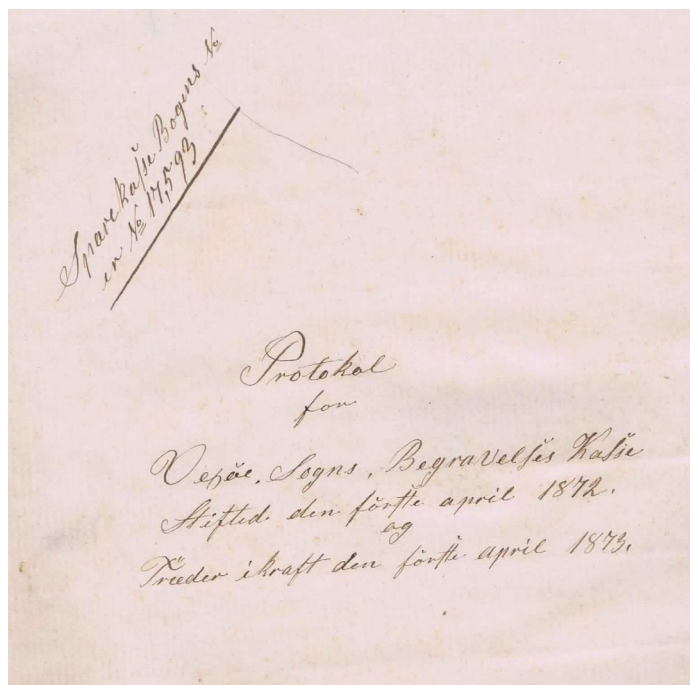 Sparekasse Bogens No
er No 17,593
Protokol
for
Vejöe. Sogns. Begravelses Kasse
Stifted. den förste april 1872.
og
Træder ikraft den förste april 1873.